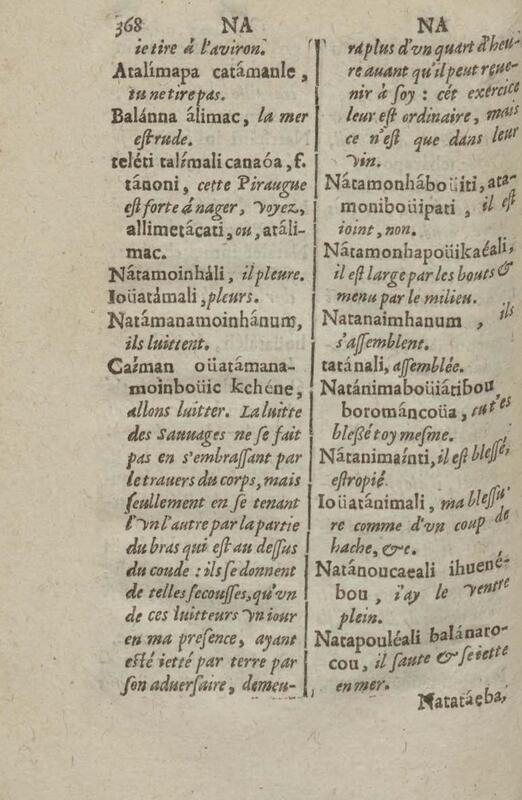 368 NA NA
ie tire á l'auiron.
Atalímapa catámanle,
tu ne tire pas.
Balánna álimac, la mer
est rude.
teléti talímali canaóa, f.
tánoni, cette Piraugue
est forte á nager, voyez,
allimetácati, ou, atáli-
mac.
Nátamoinháli, il pleure.
Ioüatámali, pleurs.
Natámanamoinhánum,
ils luittent.
Caíman oüatámana-
moinboüic kchéne,
allons luitter. La luitte
des Sauuages ne se fait
pas en s'embrassant par
le trauers du corps, mais
seullement en se tenant
l'vn l'autre par la partie
du bras qui est au dessus
du coude : ils se donnent
de telles secousses, qu'vn
de ces luitteurs vn iour
en ma presence, ayant
esté ietté par terre par
son aduersaire, demeu-
ra plus d'vn quart d'heu-
re auant qu'il peut reue-
nir à soy : cét exércice
leur est ordinaire, mais
ce n'est que dans leur
vin.
Nátamonháboüiti, ata-
moniboüipati, il est
ioint, non.
Nátamonhapoüikaéali,
il est large par les bouts &
menu par le milieu.
Natanaimhanum, ils
s'assemblent.
tatánali, assemblée.
Natánimaboüiátibou
borománcoüa, tu t'es
blessé toy mesme.
Nátanimaínti, il est blessé,
estropié.
Ioüatánimali, ma blessu-
re comme d'vn coup de
hache, &c.
Natánoucaeali ihuené-
bou, i'ay le ventre
plein.
Natapouléali balánaro-
cou, il saute & se iette
en mer.
Natatáeba,